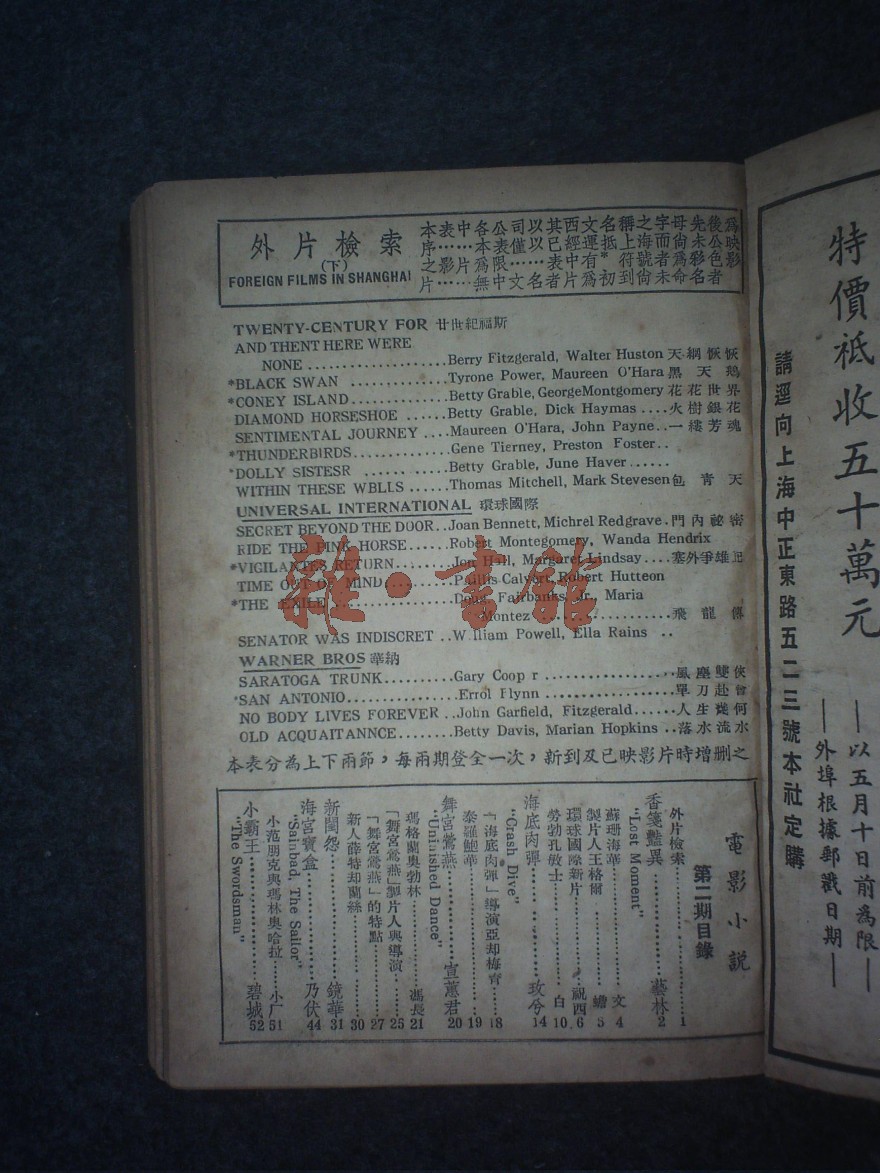 外片檢索
(下)
FOREIGN FILMS IN SHANGHAI
本表中各公司以其西文名稱之字母先後為
序……本表僅以已經運抵上海而尚未公映
之影片為限……表中有*符號者為彩色影
片……無中文名者片為初到尚未命名者
TWENTY-CENTURY FOR 廿世紀福斯
AND THENT HERE WERE
NONE ................... Berry Fitzgerald, Walter Huston 天網恢恢
*BLACK SWAN .............. Tyrone Power, Maureen O'Hara 黑天鵝
*CONEY ISLAND .............. Betty Grable, GeorgeMontgomery 花花世界
DIAMOND HORSESHOE ...... Betty Grable, Dick Haymas .... 火樹銀花
SENTIMENTAL JOURNEY .... Maureen O'Hara, John Payne.. 一縷芳魂
*THUNDERBIRDS.............. Gene Tierney, Preston Foster..
*DOLLY SISTESR ...... ...... Betty Grable, June Haver......
WITHIN THESE WBLLS ...... Thomas Mitchell, Mark Stevesen 包青天
UNIVERSAL INTERNATIONAL 環球國際
SECRET BEYOND THE DOOR.. Joan Bennett, Michrel Redgrave. 門內祕密
RIDE THE PINK HORSE...... Robert Montegomery, Wanda Hendrix
*VIGILANTES RETURN........ Jon Hall, Margaret Lindsay.... 塞外爭雄
TIME OUT OF MIND.......... Phillis Calvert, Robert Hutteon
*THE EXILE ................ Doug. Fairbanks, Jr., Maria
Montez .................. 飛龍傳
SENATOR WAS INDISCRET .. William Powell, Ella Rains ..
WARNER BROS 華納
SARATOGA TRUNK.......... Gary Coop r .................. 風塵雙俠
*SAN ANTONIO.............. Errol Flynn .................. 單刀赴會
NO BODY LIVES FOREVER .. John Garfield, Fitzgerald...... 人生幾何
OLD ACQUAITANNCE........ Betty Davis, Marian Hopkins .. 落水流水
本表分為上下兩節，每兩期登全一次，新到及已映影片時增刪之
電影小說
第二期目錄
外片檢索………1
香箋艷異………藝林 2
"Lost Moment"
蘇珊海華………文 4
製片人王格爾………蟾 5
環球國際新片………祝西 6
勞勃孔敏士………白 10
海底肉彈………玫兮 14
"Crash Dive"
「海底肉彈」導演亞却梅育………18
泰羅鮑華………19
舞宮鶯燕………宣蕙君 20
"Uninished Dance"
瑪格蘭奧勃林………馮長 21
「舞宮鶯燕」製片人與導演………25
「舞宮鶯燕」的特點………27
新人薛特却蘭絲………30
新閨怨………鏡華 31
海宮寶盒………乃伏 44
"Sainbad, The Sailor"
小范朋克與瑪林奧哈拉………小厂 51
小霸王………碧城 52
"The Swordsman"
特價祇收五十萬元
—以五月十日前為限—
—外埠根據郵戳日期—
請逕向上海中正東路五二三號本社定購
雜·書館